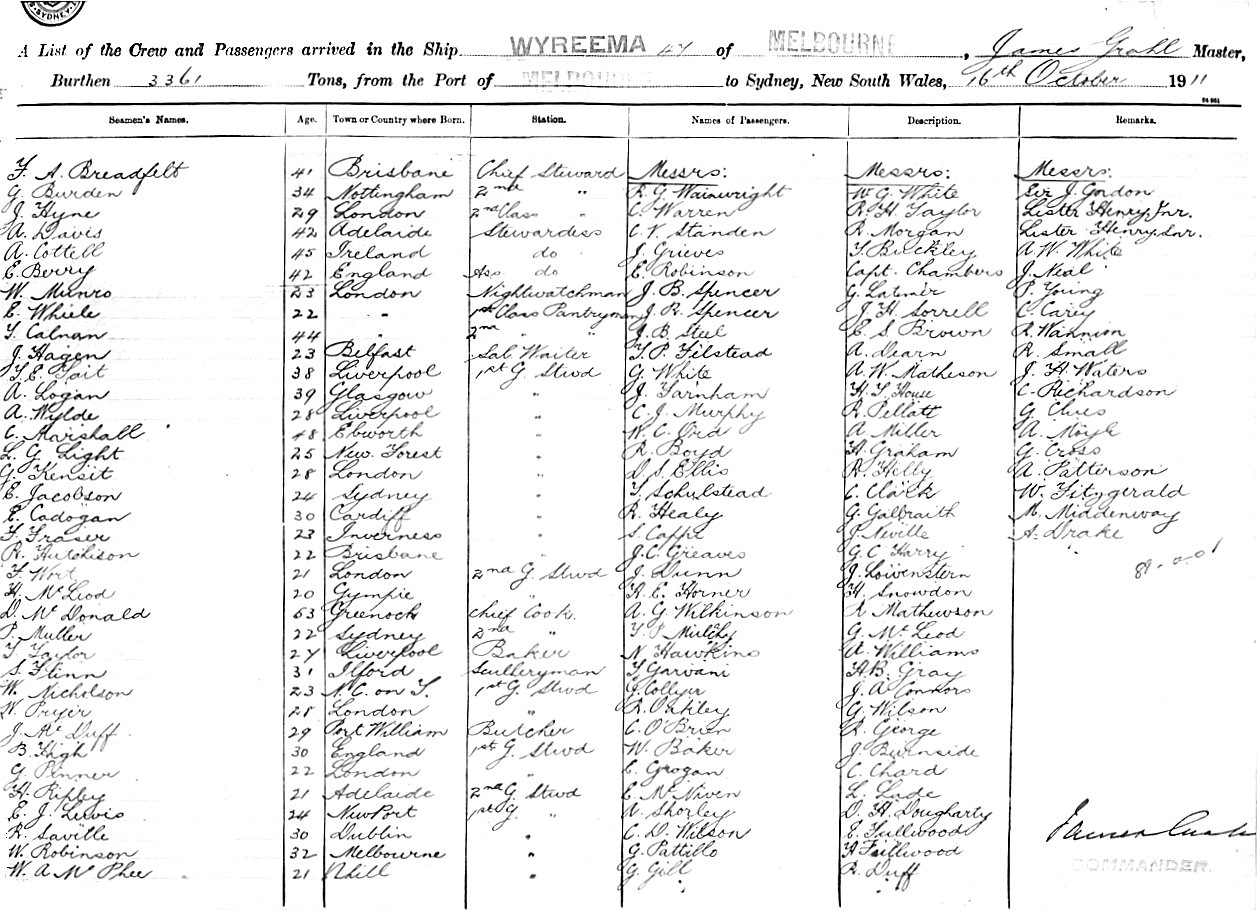 SYDNEY
A List of the Crew and Passengers arrived in the Ship WYREEMA of MELBOURNE, James Grahl Master,
Burthen 3361 Tons, from the Port of MELBOURNE to Sydney, New South Wales, 16th October 1911
Seamen's Names. Age. Town or Country where Born. Station. Names of Passengers. Description. Remarks.
F. A. Breadfelt 41 Brisbane Chief Steward Messrs: Messrs: Messrs:
G. Burden 34 Nottingham 2nd " R. G. Wainwright W. G. White Sir J. Gordon
J. Hyne 29 London 2nd Class " C. Warren R. H. Taylor Lister Henry, Jnr.
A. Davis 42 Adelaide Stewardess C. V. Standen R. Morgan Lister Henry, Snr.
A. Cottell 45 Ireland do J. Grieves T. Buckley A. W. White
E. Berry 42 England Ass. do E. Robinson Capt. Chambers J. Neal
W. Munro 23 London Nightwatchman J. B. Spencer G. Latmer P. Young
E. While 22 " 1st Class Pantryman J. R. Spencer J. H. Sorrell C. Carey
T. Calnan 44 " 2nd " J. B. Steel E. S. Brown R. Wannion
J. Hagen 23 Belfast Sal. Waiter T. P. Filstead A. Dearn R. Small
T. E. Tait 38 Liverpool 1st G. Stwd G. White A. W. Matheson J. H. Waters
A. Logan 39 Glasgow " J. Farnham H. T. House C. Richardson
A. Wylde 28 Liverpool " C. J. Murphy R. Pellatt G. Clues
C. Marshall 48 Ebworth " W. C. Ord A. Miller A. Moyle
L. G. Light 25 New Forest " R. Boyd H. Graham G. Cross
G. Kensit 28 London " D. S. Ellis R. Hilly A. Patterson
E. Jacobson 24 Sydney " T. Schulstead C. Clark W. Fitzgerald
E. Cadogan 30 Cardiff " R. Healy G. Galbraith M. Middenway
F. Fraser 23 Inverness " S. Cappe J. Neville A. Drake
R. Hutchison 22 Brisbane " J. C. Greaves G. C. Harry
F. Wort 21 London 2nd G. Stwd J. Dunn J. Lowenstern
H. McLeod 20 Gympie " A. E. Horner H. Snowdon
D. McDonald 53 Greenock Chief Cook. A. G. Wilkinson R. Mathewson
P. Muller 22 Sydney 2nd " T. P. Mulchy G. McLeod
T. Taylor 27 Liverpool Baker N. Hawkins A. Williams
S. Flinn 31 Ilford Sculleryman T. Garvani H. B. Gray
W. Nicholson 23 N. C. on T. 1st G. Stwd J. Collyer J. A. Connors
W. Pryir 28 London " R. Oakley G. Wilson
J. McDuff 29 Port William Butcher C. O'Brien R. George
B. High 30 England 1st G. Stwd W. Baker J. Burnside
G. Pinner 22 London " E. Grogan C. Chard
H. Ripley 21 Adelaide 2nd G. Stwd E. McNiven L. Lade
E. J. Lewis 24 NewPort 1st G. " A. Shorley D. H. Dougharty
R. Saville 30 Dublin " C. D. Wilson E. Fullwood
W. Robinson 32 Melbourne " G. Pattillo A. Fullwood
W. A. McPhee 21 Nhill " G. Gilt R. Duff
COMMANDER.